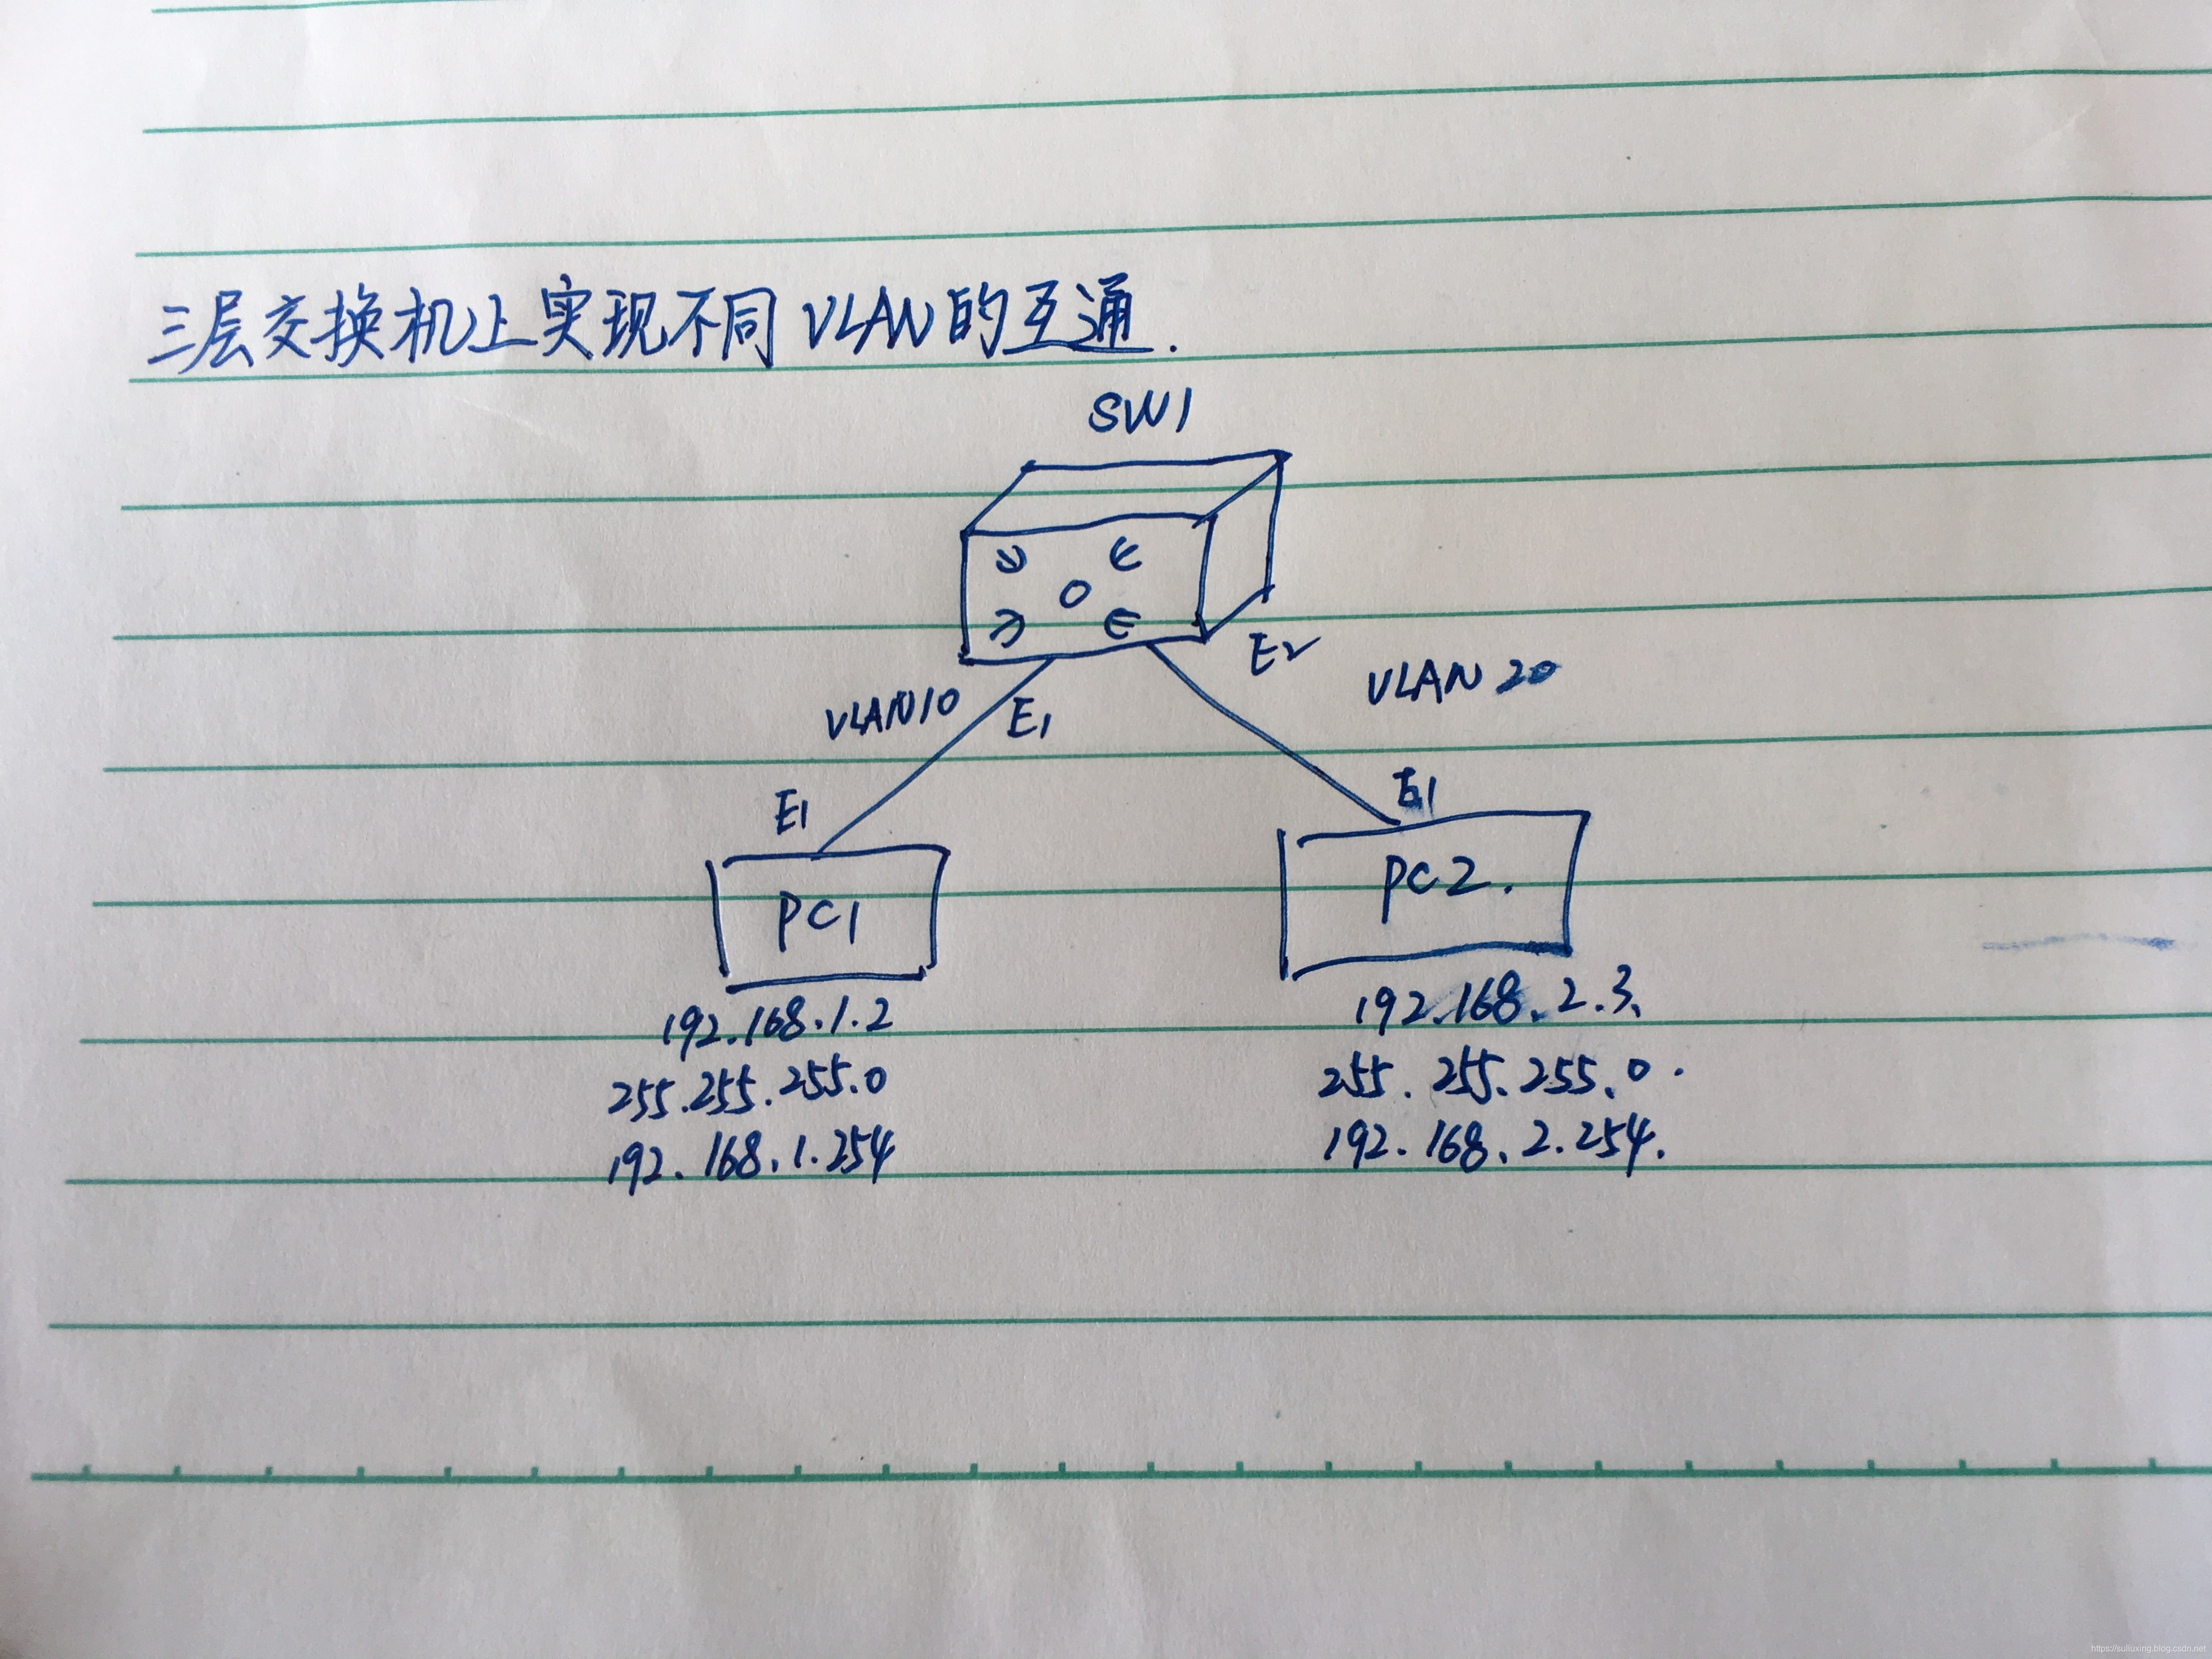 三层交换机上实现不同VLAN的互通.
SW1
E2
VLAN10
E1
VLAN 20
E1
E1
PC1
PC2.
192.168.1.2
255.255.255.0
192.168.1.254
192.168.2.3.
255.255.255.0.
192.168.2.254.
https://suliuxing.blog.csdn.net